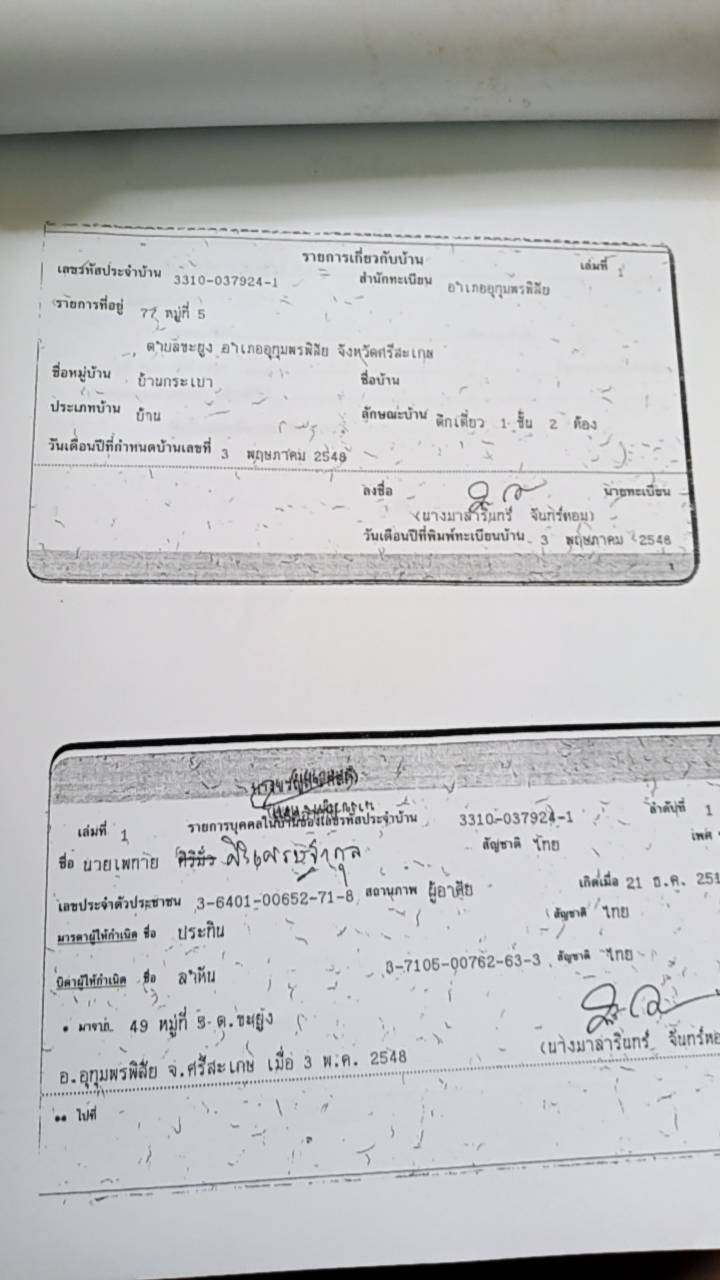 รายการเกี่ยวกับบ้าน เล่มที่ 1
เลขรหัสประจำบ้าน 3310-037924-1 สำนักทะเบียน อำเภออุทุมพรพิสัย
รายการที่อยู่ 77 หมู่ที่ 5
ตำบลขะยูง อำเภออุทุมพรพิสัย จังหวัดศรีสะเกษ
ชื่อหมู่บ้าน บ้านกระเบา ชื่อบ้าน
ประเภทบ้าน บ้าน ลักษณะบ้าน ตึกเดี่ยว 1 ชั้น 2 ห้อง
วันเดือนปีที่กำหนดบ้านเลขที่ 3 พฤษภาคม 2548
ลงชื่อ นายทะเบียน
(นางมาลารินทร์ จันทร์หอม)
วันเดือนปีที่พิมพ์ทะเบียนบ้าน 3 พฤษภาคม 2548
เล่มที่ 1 รายการบุคคลในบ้านของเลขรหัสประจำบ้าน 3310-037924-1 ลำดับที่ 1
ชื่อ นายเพทาย สัญชาติ ไทย เพศ
เลขประจำตัวประชาชน 3-6401-00652-71-8 สถานภาพ ผู้อาศัย เกิดเมื่อ 21 ธ.ค. 251
มารดาผู้ให้กำเนิด ชื่อ ประทิน สัญชาติ ไทย
บิดาผู้ให้กำเนิด ชื่อ ลำหัน 3-7105-00762-63-3 สัญชาติ ไทย
* มาจาก 49 หมู่ที่ 5 ต.ขะยูง
อ.อุทุมพรพิสัย จ.ศรีสะเกษ เมื่อ 3 พ.ค. 2548 (นางมาลารินทร์ จันทร์หอ
** ไปที่